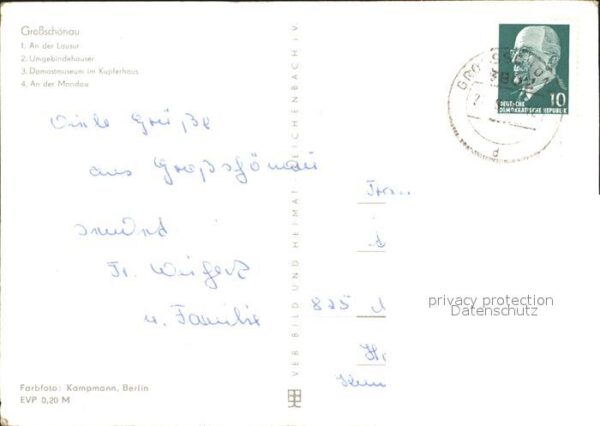 Großschönau
1. An der Lausur
2. Umgebindehäuser
3. Damastmuseum im Kupferhaus
4. An der Mandau
Viele Grüße
aus Großschönau
Fr.
u. Familie
Farbfoto: Kampmann, Berlin
EVP 0,20 M
VEB BILD UND HEIMAT REICHENBACH I. V.
10
DEUTSCHE
DEMOKRATISCHE REPUBLIK
d
825
privacy protection
Datenschutz